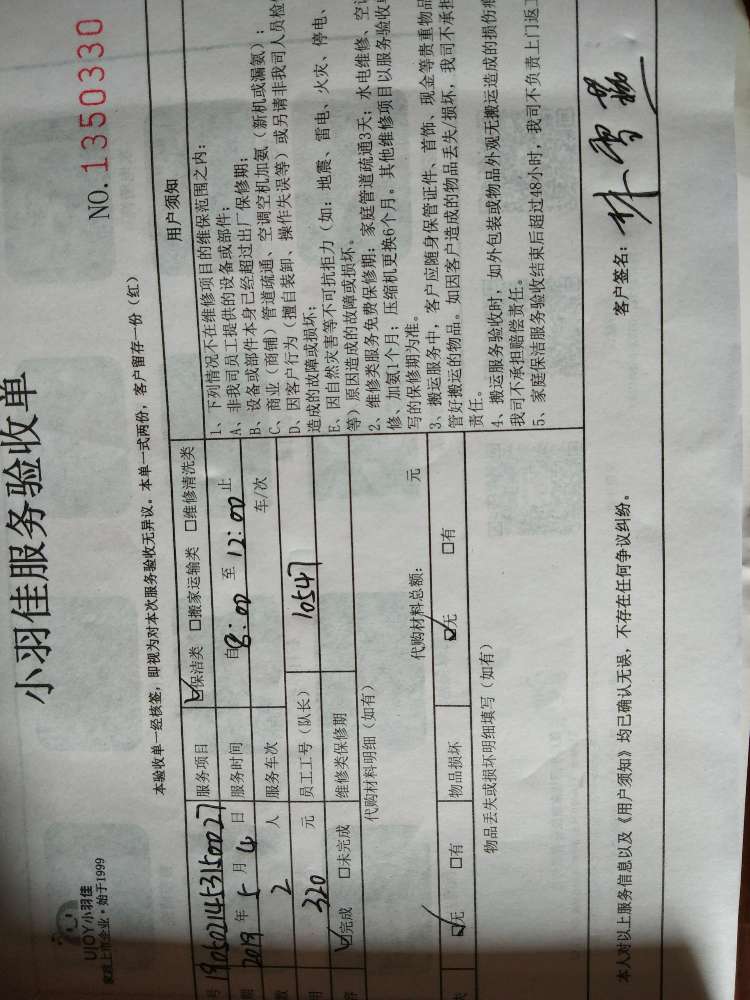 UJOY小羽佳
家政上市企业·始于1999
小羽佳服务验收单
NO.1350330
本验收单一经核签，即视为对本次服务验收无异议。本单一式两份，客户留存一份（红）
号 1905021453150027 服务项目 ☑保洁类 □搬家运输类 □维修清洗类
期 2019 年 5 月 4 日 服务时间 自 8:00 至 12:00 止
数 2 人 服务车次 车/次
用 320 元 员工工号（队长） 10547
容 ☑完成 □未完成 维修类保修期
代购材料明细（如有）
代购材料总额： 元
失 ☑无 □有 物品损坏 ☑无 □有
物品丢失或损坏明细填写（如有）
用户须知
1、下列情况不在维修项目的维保范围之内：
A、非我司员工提供的设备或部件；
B、设备或部件本身已经超过出厂保修期；
C、商业（商铺）管道疏通、空调空机加氨（新机或漏氨）；
D、因客户行为（擅自装卸、操作失误等）或另请非我司人员检
造成的故障或损坏；
E、因自然灾害等不可抗拒力（如：地震、雷电、火灾、停电、
等）原因造成的故障或损坏。
2、维修类服务免费保修期：家庭管道疏通3天；水电维修、空
修、加氨1个月；压缩机更换6个月。其他维修项目以服务验收
写的保修期为准。
3、搬运服务中，客户应随身保管证件、首饰、现金等贵重物品
管好搬运的物品。如因客户造成的物品丢失/损坏，我司不承担
责任。
4、搬运服务验收时，如外包装或物品外观无搬运造成的损伤
我司不承担赔偿责任。
5、家庭保洁服务验收结束后超过48小时，我司不负责上门返工
本人对以上服务信息以及《用户须知》均已确认无误，不存在任何争议纠纷。
客户签名：